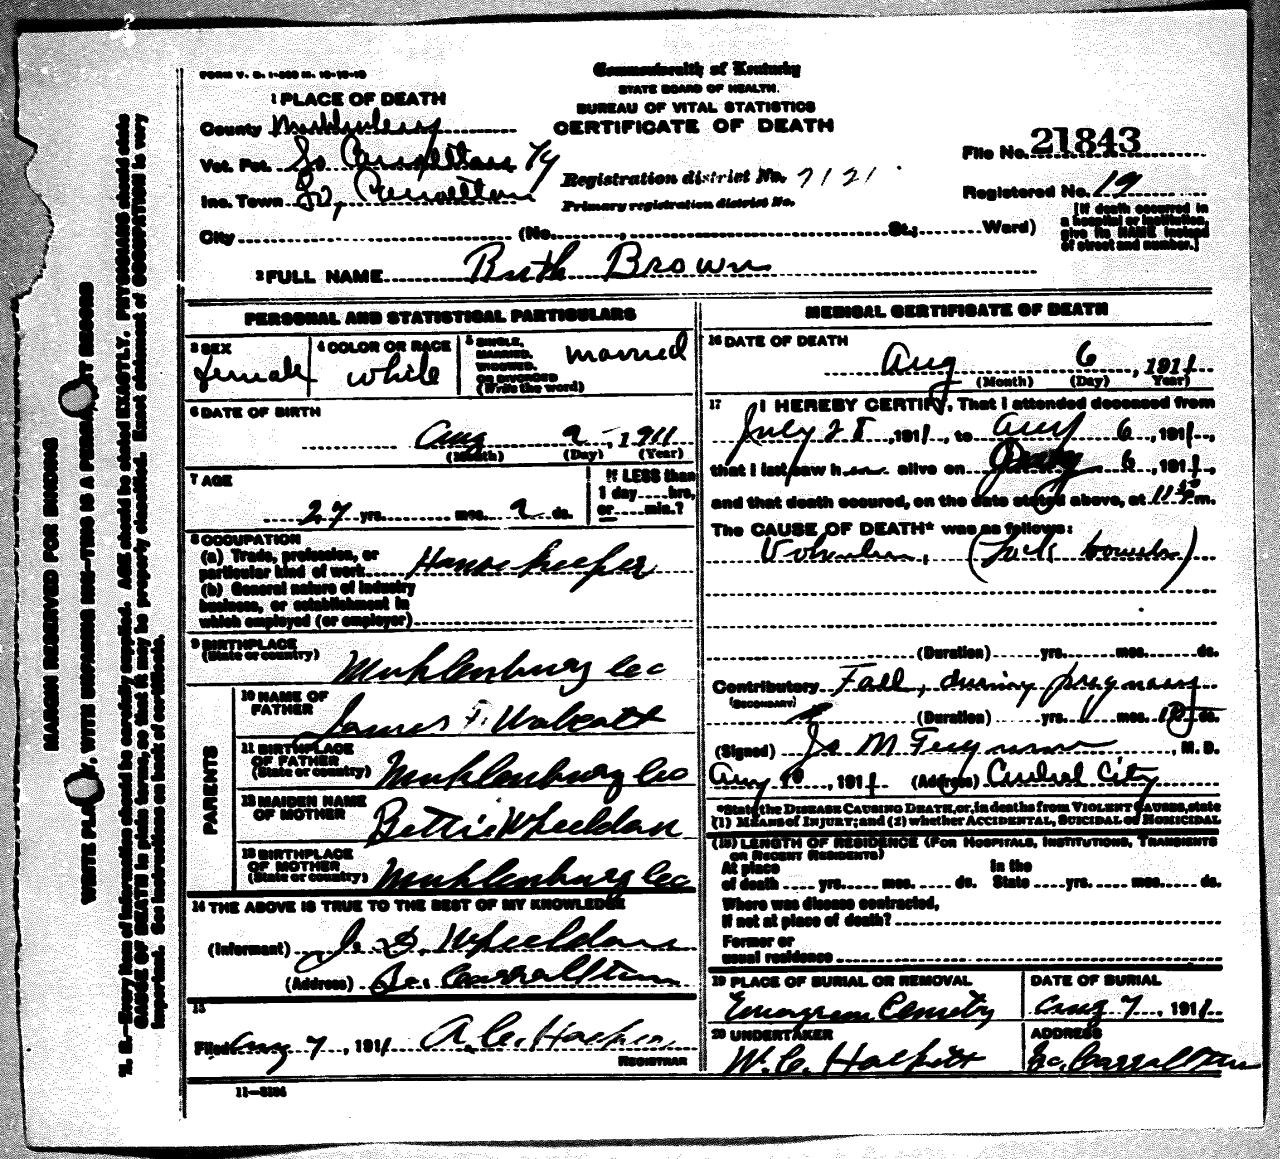 FORM V. S. 1-
Commonwealth of Kentucky
STATE BOARD OF HEALTH.
BUREAU OF VITAL STATISTICS
CERTIFICATE OF DEATH
1 PLACE OF DEATH
County
Vot. Pct. So Carrollton Ky
Inc. Town So, Carrollton
City (No. , St.; Ward)
Registration district No. 7121
Primary registration district No.
File No. 21843
Registered No. 19
[If death occurred in
a hospital or institution,
give its NAME instead
of street and number.]
2 FULL NAME Ruth Brown
PERSONAL AND STATISTICAL PARTICULARS
3 SEX
female
4 COLOR OR RACE
white
5 SINGLE,
MARRIED,
WIDOWED,
OR DIVORCED
(Write the word)
married
6 DATE OF BIRTH
Aug 9 , 1911
(Month) (Day) (Year)
7 AGE
27 yrs. mos. 9 ds.
If LESS than
1 day hrs.
or min.?
8 OCCUPATION
(a) Trade, profession, or
particular kind of work House keeper
(b) General nature of industry
business, or establishment in
which employed (or employer)
9 BIRTHPLACE
(State or country) Muhlenburg Co
PARENTS
10 NAME OF
FATHER James F.
11 BIRTHPLACE
OF FATHER
(State or country) Muhlenburg Co
12 MAIDEN NAME
OF MOTHER Bettie Wheeldon
13 BIRTHPLACE
OF MOTHER
(State or country) Muhlenburg Co
14 THE ABOVE IS TRUE TO THE BEST OF MY KNOWLEDGE
(Informant) Wheeldon
(Address) So. Carrollton
15
Filed Aug 7 , 1911
REGISTRAR
11-3184
MEDICAL CERTIFICATE OF DEATH
16 DATE OF DEATH
Aug 6 , 1911
(Month) (Day) Year)
17 I HEREBY CERTIFY, That I attended deceased from
July 28 , 1911, to Aug 6 , 1911,
that I last saw h er alive on 6 , 1911,
and that death occured, on the date stated above, at 11 m.
The CAUSE OF DEATH* was as follows:
Volvulus, (Lock bowels)
(Duration) yrs. mos. ds.
Contributory Fall, during pregnancy
(SECONDARY)
(Duration) yrs. mos. 10 ds.
(Signed) M , M. D.
Aug 10 , 1911 (Address) Central City
*State the DISEASE CAUSING DEATH, or, in deaths from VIOLENT CAUSES, state
(1) MEANS of INJURY; and (2) whether ACCIDENTAL, SUICIDAL or HOMICIDAL
(18) LENGTH OF RESIDENCE (FOR HOSPITALS, INSTITUTIONS, TRANSIENTS
OR RECENT RESIDENTS)
At place
of death yrs. mos. ds.
in the
State yrs. mos. ds.
Where was disease contracted,
if not at place of death?
Former or
usual residence
19 PLACE OF BURIAL OR REMOVAL
Evergreen Cemetry
DATE OF BURIAL
Aug 7 , 1911
20 UNDERTAKER
W. C.
ADDRESS
So. Carrollton
MARGIN RESERVED FOR BINDING
WRITE WITH UNFADING INK—THIS IS A RECORD
N. B.—Every item of information should be carefully supplied. AGE should be stated EXACTLY. PHYSICIANS should state
CAUSE OF DEATH in plain terms, so that it may be properly classified. Exact statement of OCCUPATION is very
important. See instructions on back of certificate.